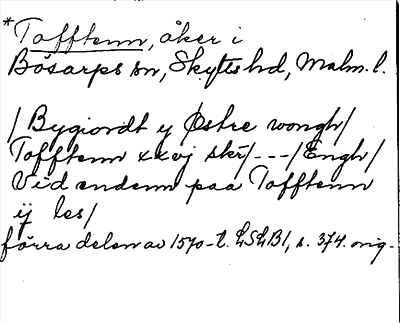 *Tofftenn, åker i
Bösarps sn, Skytts hd, Malm. l.
/Bygiordt y Østre wongh/
Tofftenn xxvj skr/---/Engh/
Vid endenn paa Tofftenn
ij les/
förra delen av 1570-t. LSLB1, s. 374. orig.